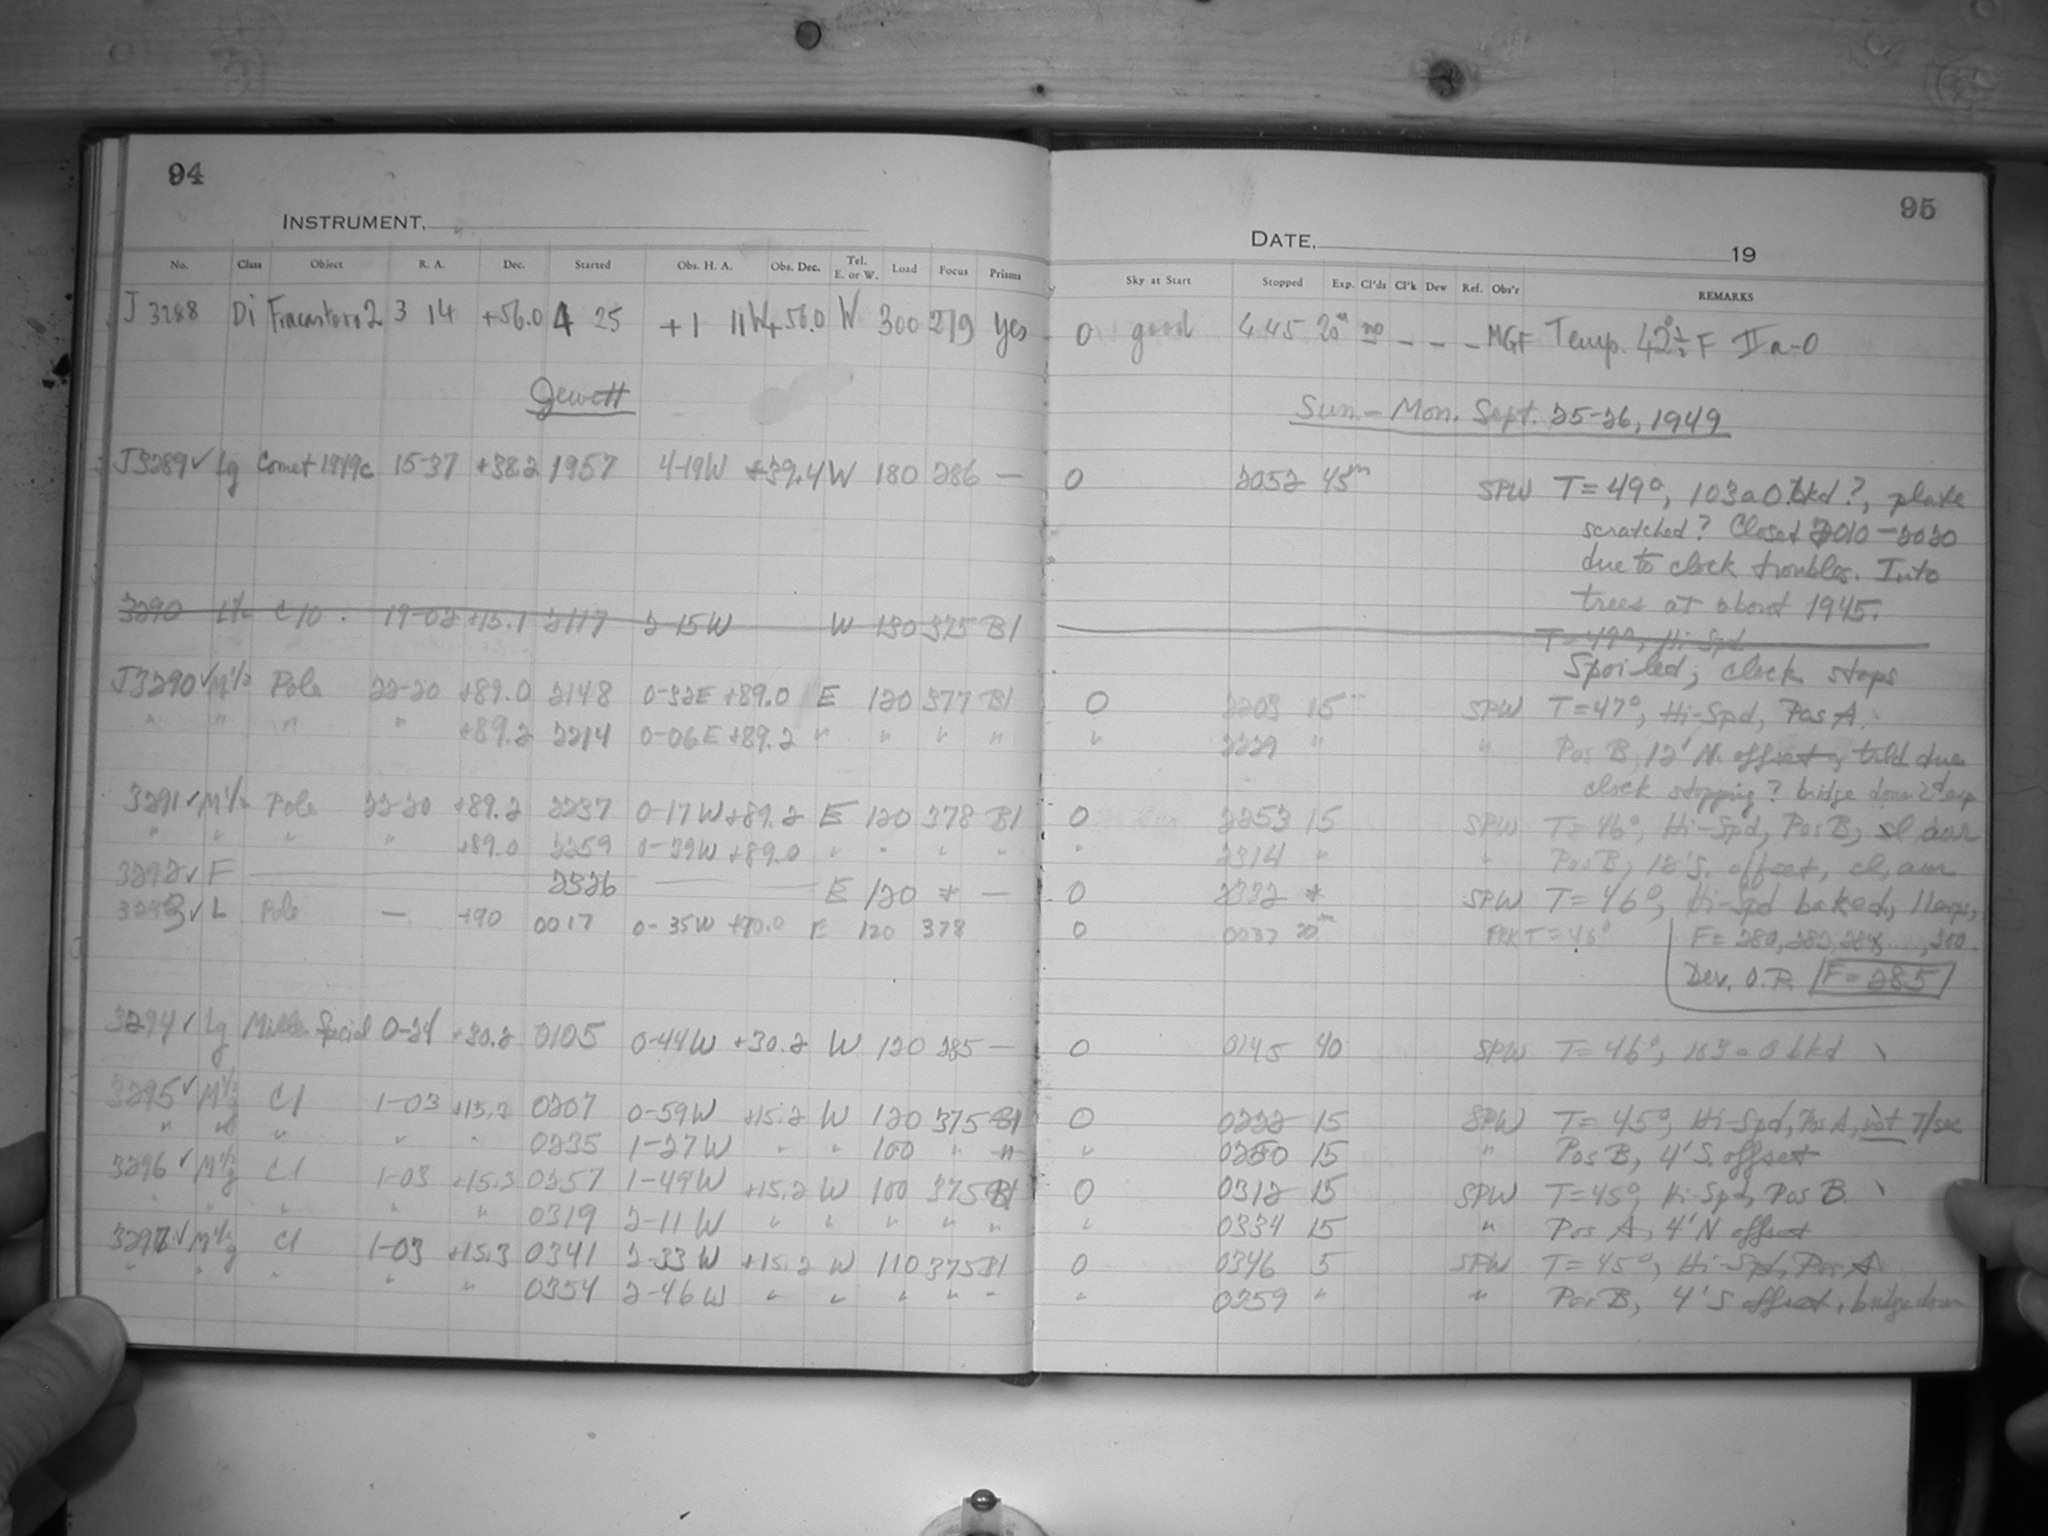 94
INSTRUMENT,
No. Class Object R. A. Dec. Started Obs. H. A. Obs. Dec. Tel. E. or W. Load Focus Prisms
J 3288 Di Fracastoro 2 3 14 +56.0 4 25 +1 11W +56.0 W 300 279 yes
Jewett
J3289✓ Lg Comet 1949c 15-37 +38.2 1957 4-19W +39.4 W 180 286 —
3290 C10 19-02 +15.1 2117 2-15W W 130 375 B1
J3290✓ M½ Pole 22-20 +89.0 2148 0-32E +89.0 E 120 377 B1
" " " " +89.2 2214 0-06E +89.2 " " " "
3291✓ M½ Pole 22-20 +89.2 2237 0-17W +89.2 E 120 378 B1
" " " " +89.0 2259 0-39W +89.0 " " " "
3292✓ F — 2326 — — E 120 * —
3293✓ L Pole — +90 0017 0-35W +90.0 E 120 378
3294✓ Lg Miller Special 0-24 +30.2 0105 0-44W +30.2 W 120 285 —
3295✓ M½g C1 1-03 +15.3 0207 0-59W +15.2 W 120 375 B1
" " " " " 0235 1-27W " " 100 " "
3296✓ M½g C1 1-03 +15.3 0257 1-49W +15.2 W 100 375 B1
" " " " " 0319 2-11W " " " " "
3297✓ M½g C1 1-03 +15.3 0341 2-33W +15.2 W 110 375 B1
" " " " " 0354 2-46W " " " " "
95
DATE, 19
Sky at Start Stopped Exp. Cl'ds Cl'k Dew Ref. Obs'r REMARKS
0 good 4 45 20m no — — — MGF Temp. 42½° F IIa-O
Sun.-Mon. Sept. 25-26, 1949
0 2052 45m SPW T=49°, 103aO bkd?, plate
scratched? Closed 2010-2020
due to clock troubles. Into
trees at about 1945.
T=49°, Hi-Spd
Spoiled; clock stops
0 2203 15 SPW T=47°, Hi-Spd, Pos A.
" 2229 " " Pos B, 12' N. offset, trld due
clock stopping? bridge down 2d exp
0 2253 15 SPW T=46°, Hi-Spd, Pos B, sl aur
" 2314 " " Pos B, 12' S. offset, sl, aur
0 2332 * SPW T=46°, Hi-Spd baked, 11 exps,
0 0037 20m T=46° F=280, 282, 284, ....., 300.
Dev. O.R. F=285
0 0145 40 SPW T=46°, 103aO bkd
0 0222 15 SPW T=45°, Hi-Spd, Pos A, not 7/sec
" 0250 15 " Pos B, 4' S. offset
0 0312 15 SPW T=45°, Hi-Spd, Pos B.
" 0334 15 " Pos A, 4' N offset
0 0346 5 SPW T=45°, Hi-Spd, Pos A
" 0359 " " Pos B, 4' S offset, bridge down